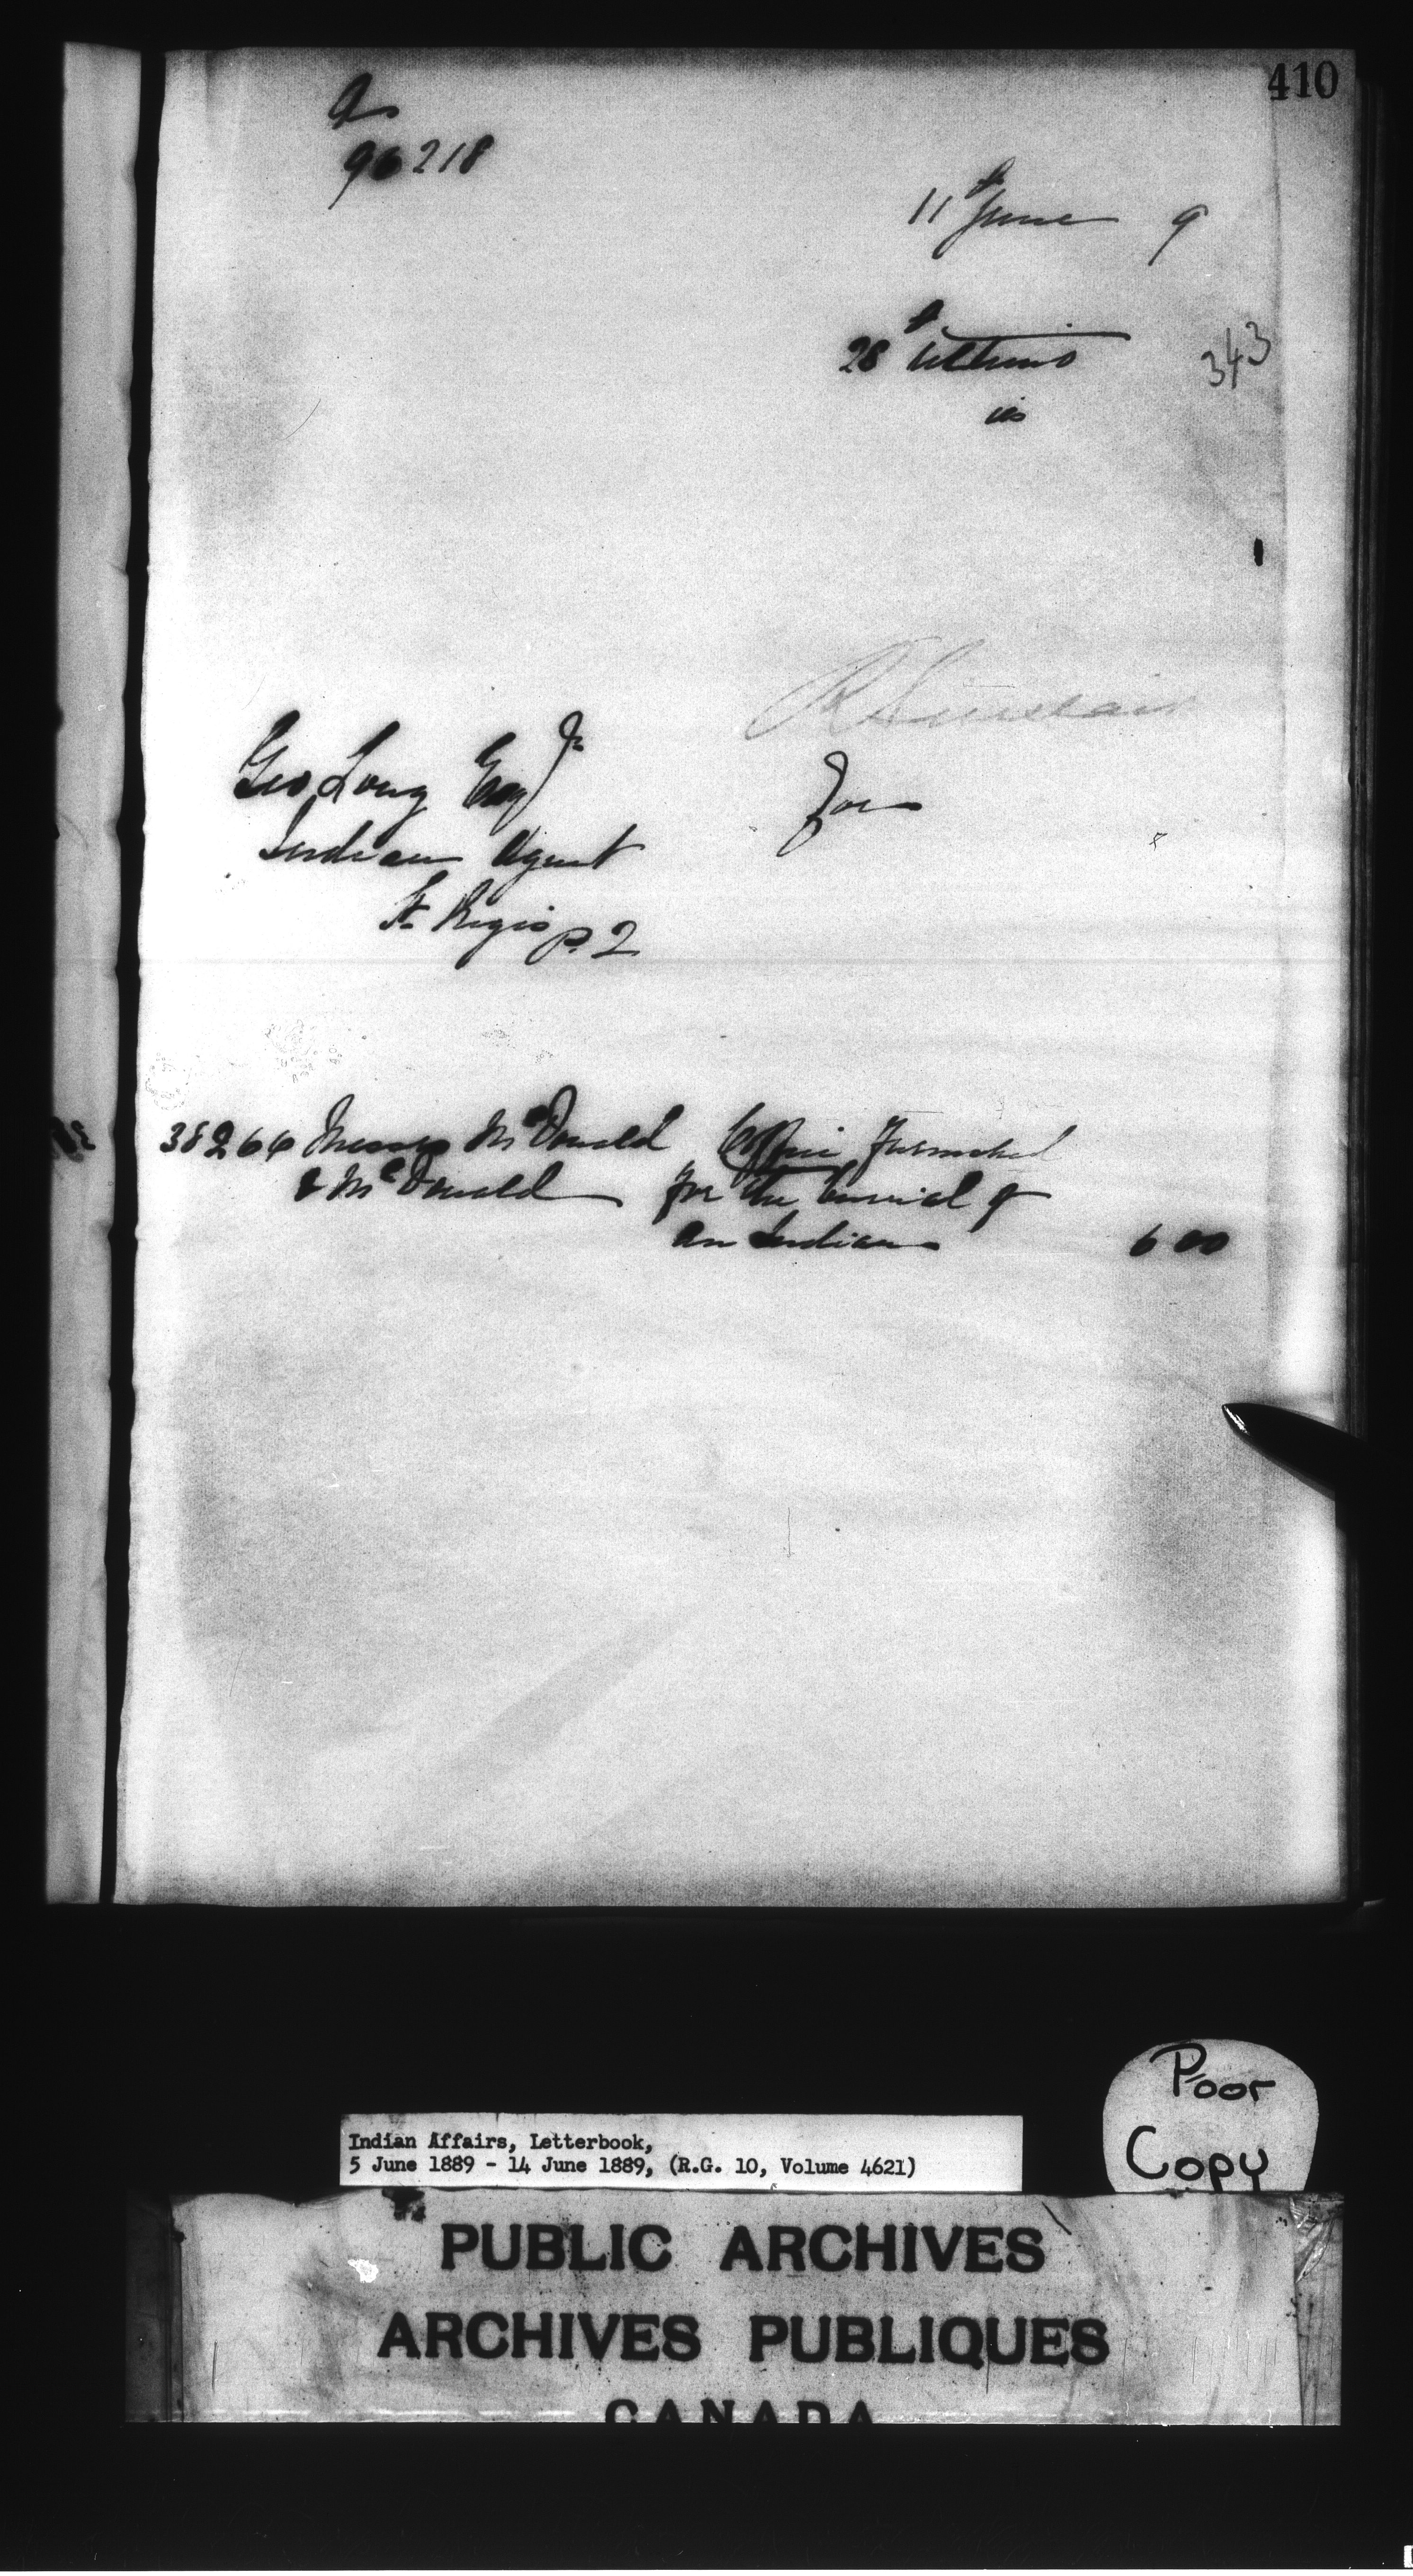 410
96218
11th June 9
28th Ultimo
343
is
R Sinclair
Geo Long Esq Jr
for
Indian Agent
St. Regis P. Q
38266 Messrs McDonald Coffin furnished
& McDonald for the burial of
an Indian 6 00
Poor
Copy
Indian Affairs, Letterbook,
5 June 1889 - 14 June 1889, (R.G. 10, Volume 4621)
PUBLIC ARCHIVES
ARCHIVES PUBLIQUES
CANADA